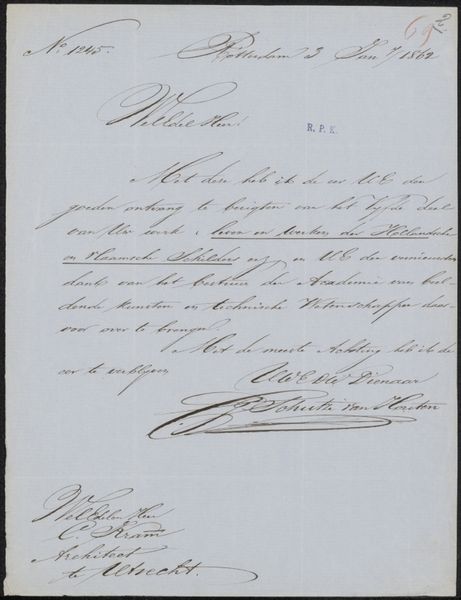 No 1245.
Rotterdam 3 Juny 1862
WelEdel Heer!
R. P. K.
Met deze heb ik de eer UE den
goeden ontvang te berigten van het deel
van Uw werk: leven en werken der Hollandsche
en Vlaamsche Schilders enz en UE den
dank van het bestuur der Academie van beel-
dende kunsten en technische Wetenschappen daar-
voor over te brengen.
Met de meeste Achting heb ik de
eer te verblijven
UWE DW Dienaar
van Houten
WelEdelen Heer
C. Kramm
Architect
te Utrecht.